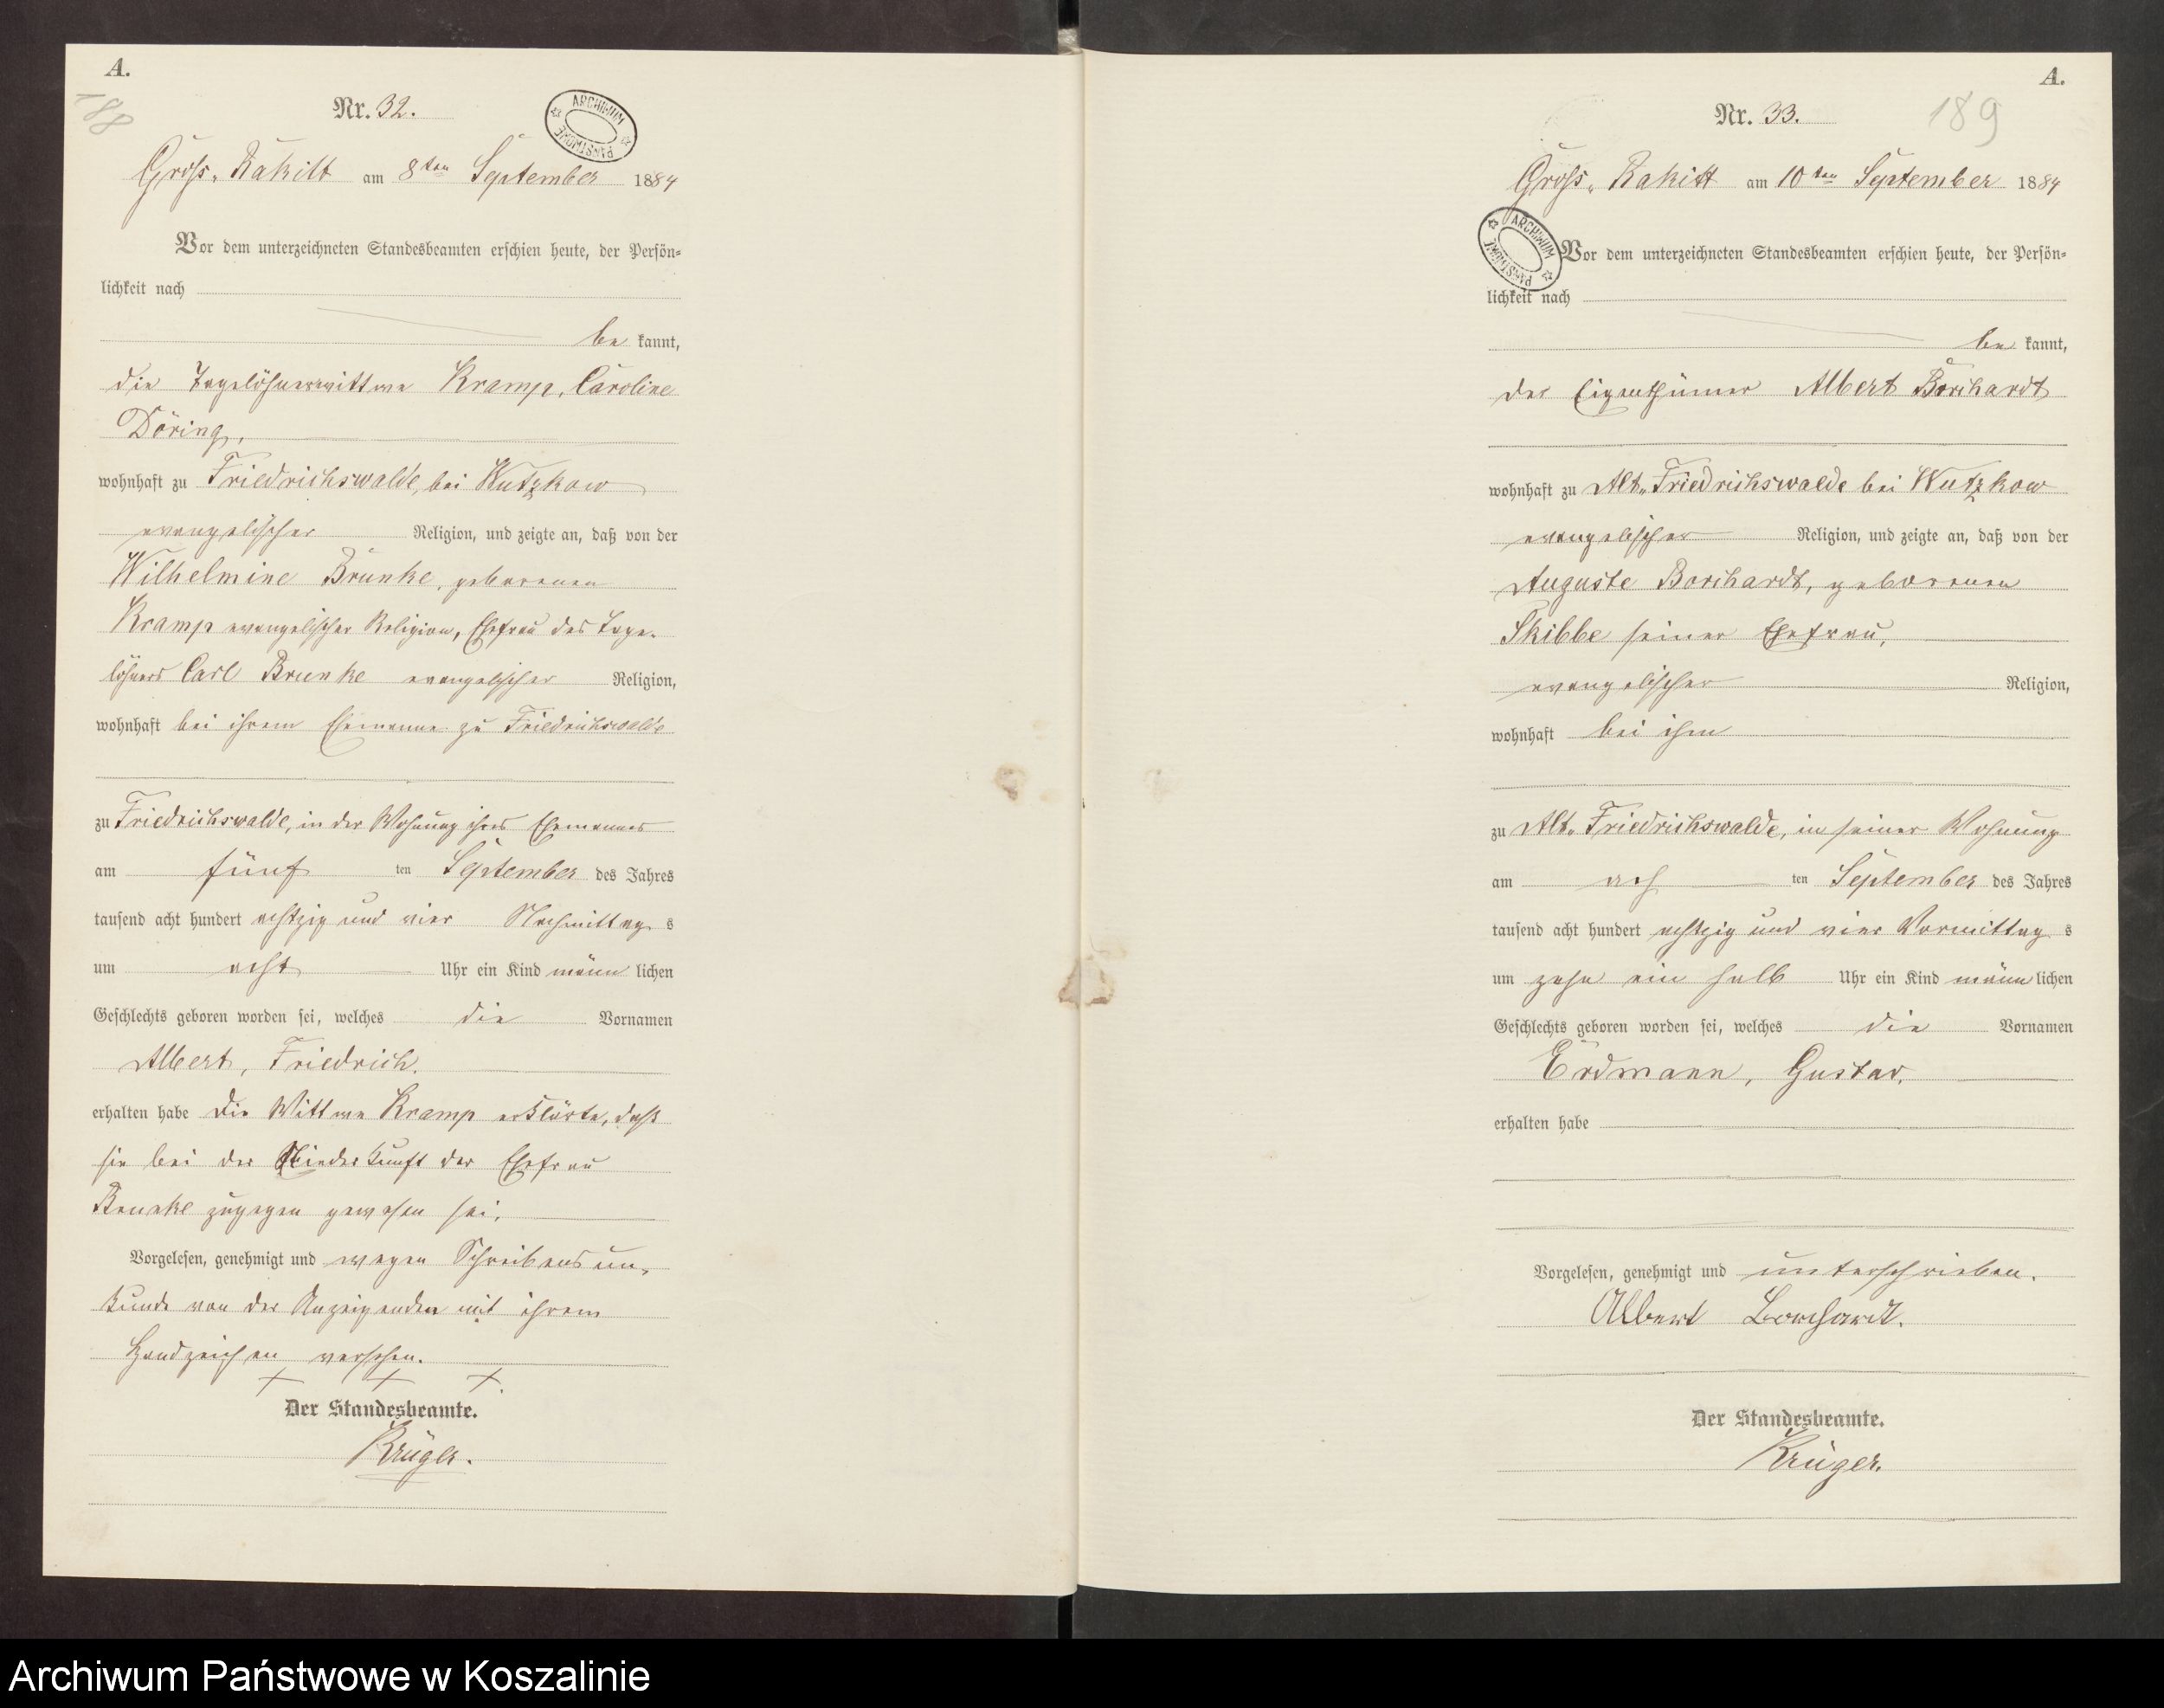 A.
188
Nr. 32.
ARCHIWUM PAŃSTWOWE
Gross-Rakitt am 8ten September 1884
Vor dem unterzeichneten Standesbeamten erschien heute, der Persön-
lichkeit nach
be kannt,
die Tagelöhnerwittwe Kramp, Caroline
Döring,
wohnhaft zu Friedrichswalde, bei Wutzkow
evangelischer Religion, und zeigte an, daß von der
Wilhelmine Brunke, geborenen
Kramp evangelischer Religion, Ehefrau des Tage-
löhners Carl Brunke evangelischer Religion,
wohnhaft bei ihrem Ehemanne zu Friedrichswalde
zu Friedrichswalde, in der Wohnung ihres Ehemannes
am fünf ten September des Jahres
tausend acht hundert achtzig und vier Nachmittag s
um acht Uhr ein Kind männ lichen
Geschlechts geboren worden sei, welches die Vornamen
Albert, Friedrich.
erhalten habe Die Wittwe Kramp erklärte, daß
sie bei der Niederkunft der Ehefrau
Brunke zugegen gewesen sei.
Vorgelesen, genehmigt und wegen Schreibensun-
kunde von der Anzeigenden mit ihrem
Handzeichen versehen.
+ + +.
Der Standesbeamte.
Krüger.
A.
189
Nr. 33.
Gross-Rakitt am 10ten September 1884
ARCHIWUM PAŃSTW.
Vor dem unterzeichneten Standesbeamten erschien heute, der Persön-
lichkeit nach
be kannt,
der Eigenthümer Albert Borchardt
wohnhaft zu Alt-Friedrichswalde bei Wutzkow
evangelischer Religion, und zeigte an, daß von der
Auguste Borchardt, geborenen
Skibbe seiner Ehefrau,
evangelischer Religion,
wohnhaft bei ihm
zu Alt-Friedrichswalde, in seiner Wohnung
am ach ten September des Jahres
tausend acht hundert achtzig und vier Vormittag s
um zehn ein halb Uhr ein Kind männ lichen
Geschlechts geboren worden sei, welches die Vornamen
Erdmann, Gustav.
erhalten habe
Vorgelesen, genehmigt und unterschrieben.
Albert Borchardt.
Der Standesbeamte.
Krüger.
Archiwum Państwowe w Koszalinie